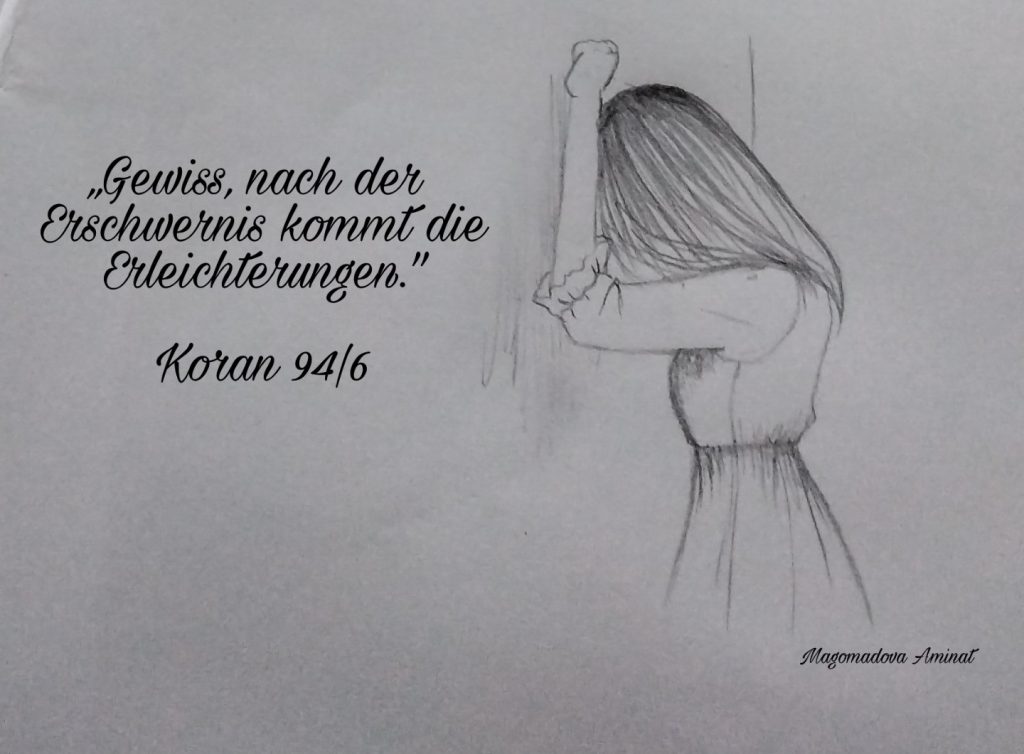 „Gewiss, nach der
Erschwernis kommt die
Erleichterungen."
Koran 94/6
Magomadova Aminat